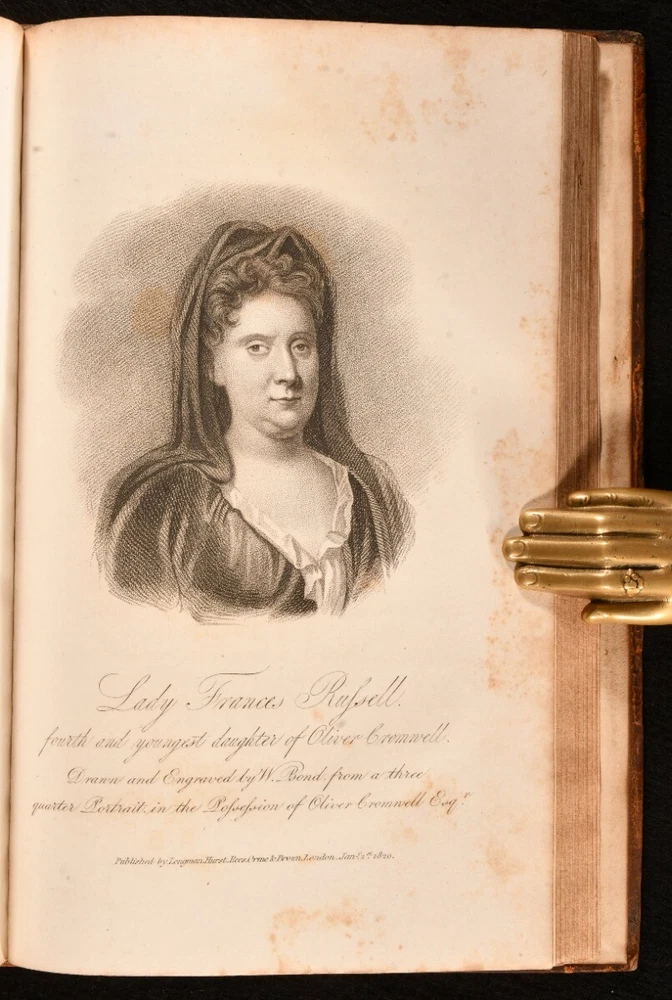 Lady Frances Ruſsell.
fourth and youngest daughter of Oliver Cromwell.
Drawn and Engraved by W. Bond, from a three
quarter Portrait, in the Poſseſsion of Oliver Cromwell Esqr.
Published by Longman, Hurst, Rees, Orme & Brown, London, Jany. 1st. 1820.